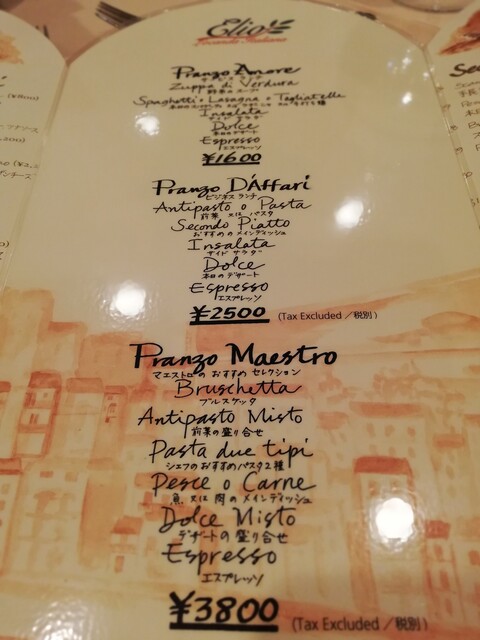 Elio
Locanda Italiana
Pranzo Amore
Zuppa di Verdura
野菜のスープ
Spaghetti o Lasagna o Tagliatelle
Insalata
サイド サラダ
Dolce
本日のデザート
Espresso
エスプレッソ
¥1600
Pranzo D'Affari
ビジネス ランチ
Antipasto o Pasta
前菜 又は パスタ
Secondo Piatto
おすすめのメインディッシュ
Insalata
サイド サラダ
Dolce
本日のデザート
Espresso
エスプレッソ
¥2500 (Tax Excluded／税別)
Pranzo Maestro
マエストロの おすすめ セレクション
Bruschetta
ブルスケッタ
Antipasto Misto
前菜の盛り合せ
Pasta due tipi
シェフのおすすめパスタ2種
Pesce o Carne
魚 又は 肉のメインディッシュ
Dolce Misto
デザートの盛り合せ
Espresso
エスプレッソ
¥3800 (Tax Excluded／税別)